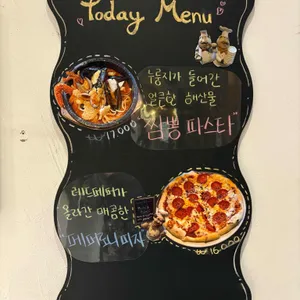 Today Menu
누룽지가 들어간
얼큰한 해산물
"짬뽕 파스타"
₩17000
레드페퍼가
올라간 매콤한
"페퍼로니피자"
₩16.000